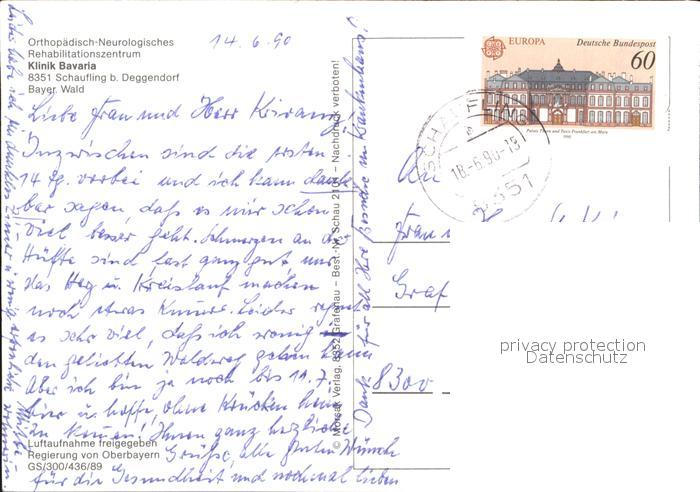 Orthopädisch-Neurologisches
Rehabilitationszentrum
Klinik Bavaria
8351 Schaufling b. Deggendorf
Bayer. Wald
14.6.90
Liebe Frau und Herr
Inzwischen sind die ersten
14 Tg. vorbei und ich kann dank-
bar sagen, daß es mir schon
viel besser geht. Schmerzen an der
Hüfte sind fast ganz gut nur
das Herz u. Kreislauf machen
noch etwas Kummer. Leider regnet
es sehr viel, daß ich wenig
den geliebten Waldweg gehen kann
Aber ich bin ja noch bis 11.7.
hier u. hoffe, ohne Krücken heim
zu können! Ihnen ganz herzliche
Grüße, alle guten Wünsche
für die Gesundheit und nochmal lieben
Dank für all Ihre Besuche im Krankenhaus!
Leider habe ich ein dunkles Zimmer u.
Luftaufnahme freigegeben
Regierung von Oberbayern
GS/300/436/89
© Morsak Verlag, 8352 Grafenau – Best.-Nr. Schau 2104 – Nachdruck verboten!
EUROPA Deutsche Bundespost
60
Palais Thurn und Taxis Frankfurt am Main
1990
SCHAUFLING
18.-6.90-15
8351
An
Frau
Graf
8300
privacy protection
Datenschutz